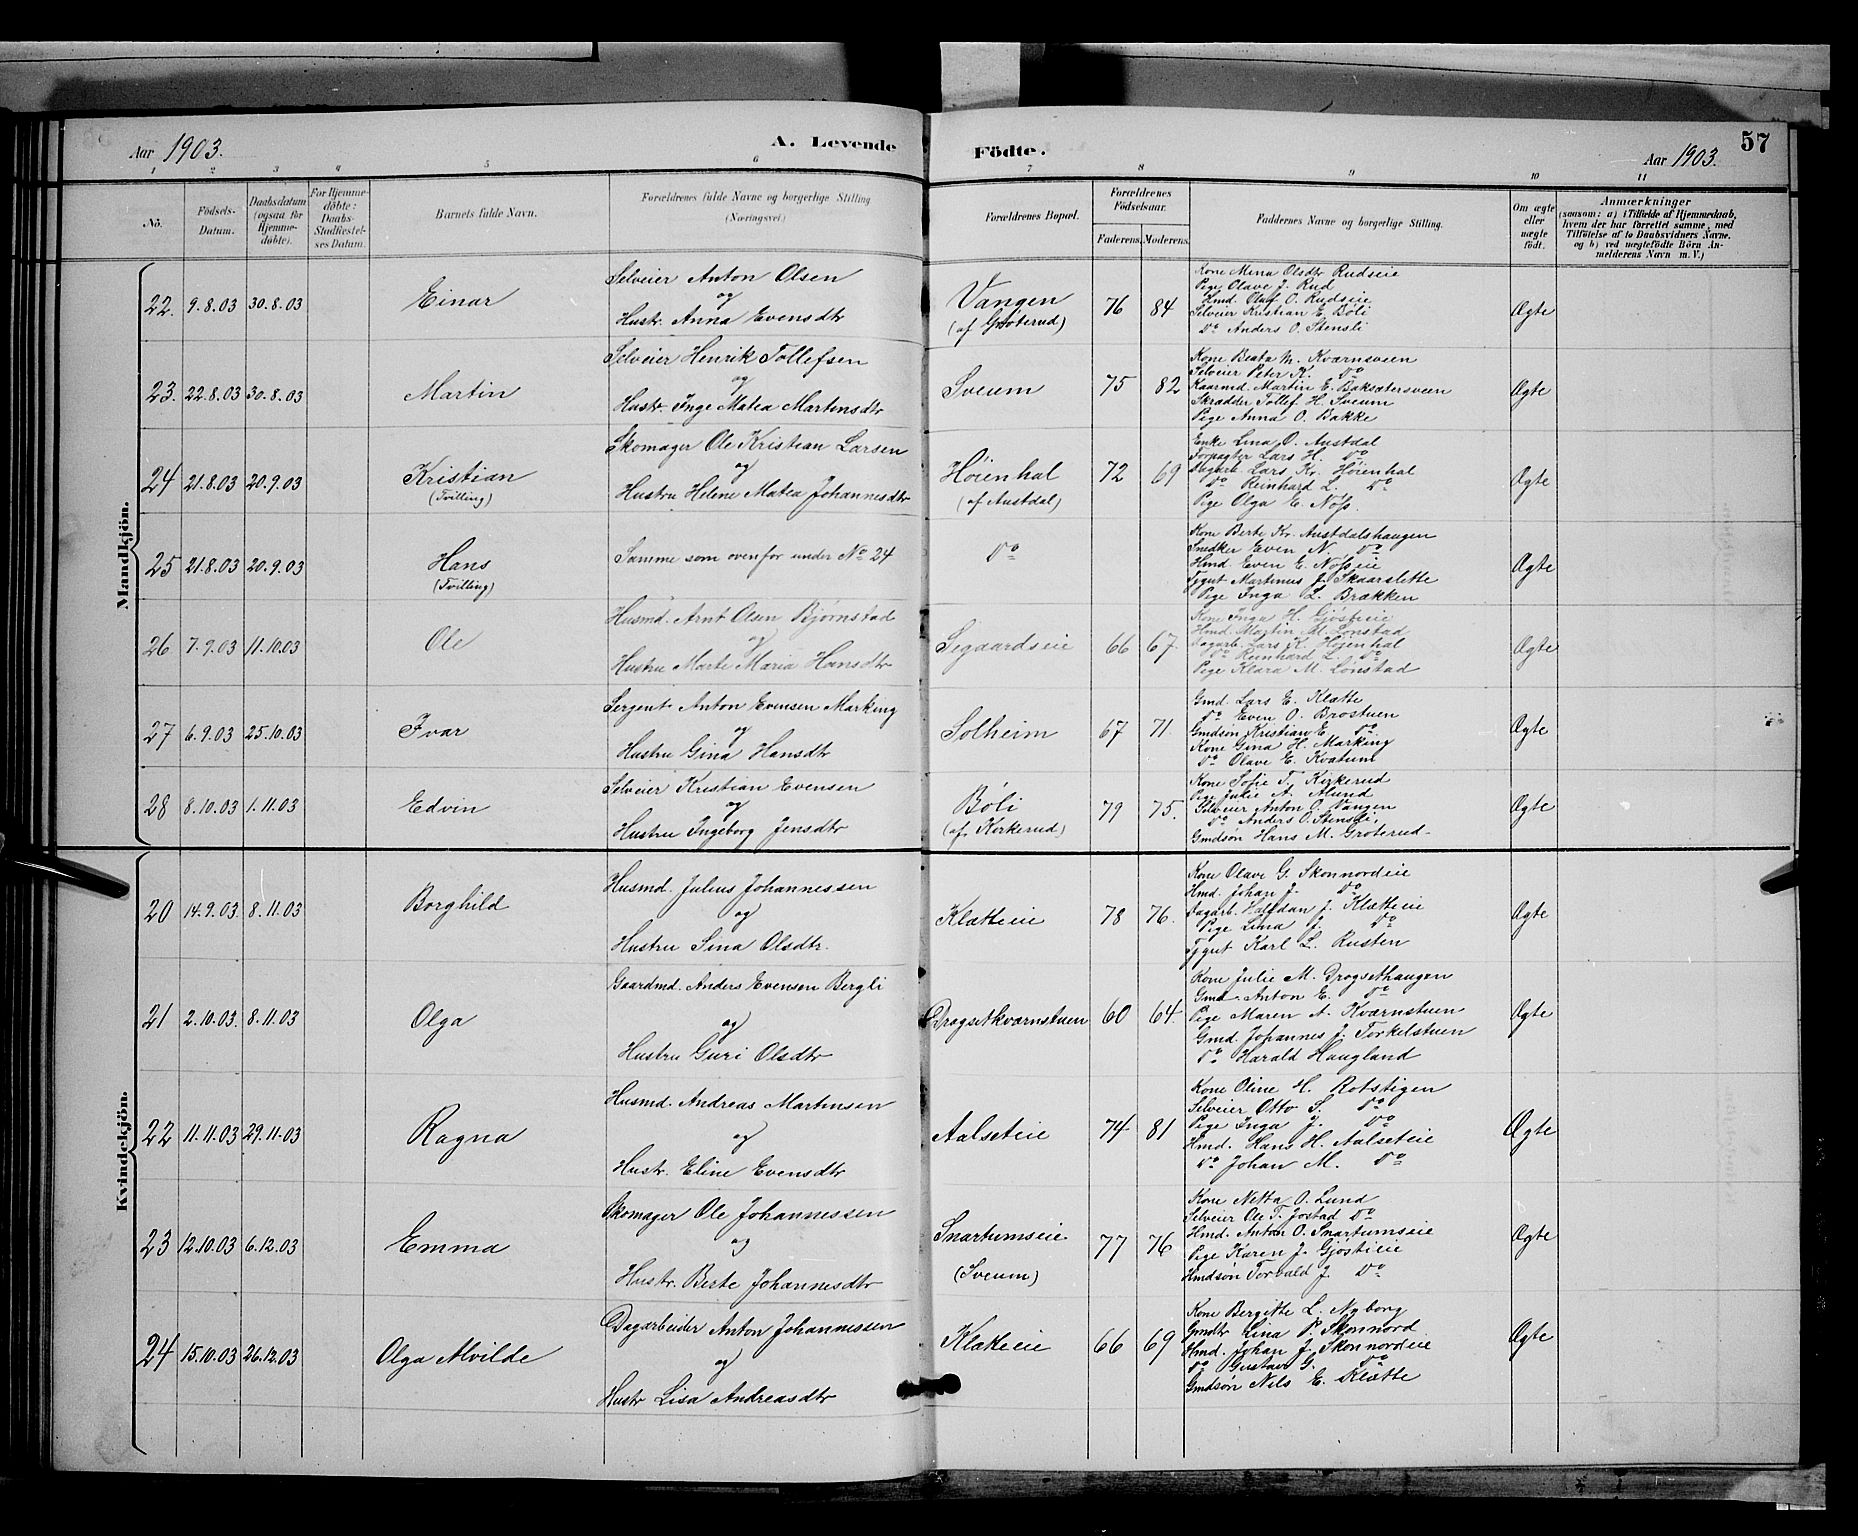 57
Aar 1903.
A. Levende Födte.
Aar 1903.
1 2 3 4 5 6 7 8 9 10 11
No.
Födsels-
Datum.
Daabsdatum
(ogsaa for
Hjemme-
döbte).
For Hjemme-
döbte:
Daabs-
Stadfæstel-
ses Datum.
Barnets fulde Navn.
Forældrenes fulde Navne og borgerlige Stilling
(Næringsvei)
Forældrenes Bopæl.
Forældrenes
Födselsaar.
Faderens. Moderens.
Faddernes Navne og borgerlige Stilling.
Om ægte
eller
uægte
födt.
Anmærkninger
(saasom: a) i Tilfælde af Hjemmedaab,
hvem der har forrettet samme, med
Tilföielse af to Daabsvidners Navne.
og b) ved uægtefödte Börn An-
melderens Navn m. V.)
Mandkjön.
22. 9.8.03 30.8.03 Einar
Selveier Anton Olsen
og
Hustr. Anna Evensdtr
Vangen
(af Grøterud)
76 84
Kone Mina Olsdtr Rudseie
Pige Olave J. Rud
Hmd. Oluf O. Rudseie
Selveier Kristian E. Bøli
Do Anders O. Stensli
Ægte
23. 22.8.03 30.8.03 Martin
Selveier Henrik Tollefsen
og
Hustr. Inge Matea Martinsdtr
Sveum
75 82
Kone Beata M. Kværnsveen
Selveier Peter K. Do
Kaarmd. Martin E. Baksætersveen
Skrædder Tollef H. Sveum
Pige Anna O. Bakke
Ægte
24 21.8.03 20.9.03 Kristian
(Tvilling)
Skomager Ole Kristian Larsen
og
Hustru Helene Matea Johannesdtr
Høienhal
(af Austdal)
72 69
Enke Lina O. Austdal
Forpagter Lars H. Do
Dagarb. Lars Kr. Høienhal
Do Reinhard L. Do
Pige Olga E. Nøss.
Ægte
25 21.8.03 20.9.03 Hans
(Tvilling)
Samme som ovenfor under No 24
Do
Kone Berte Kr. Austdalshaugen
Snedker Even N. Do
Hmd. Even E. Nøsseie
Tygut Martinus J. Skaarslette
Pige Inga L. Brækken
Ægte
26 7.9.03 11.10.03 Ole
Husmd. Arnt Olsen Bjørnstad
og
Hustru Marte Maria Hansdtr
Sigaardseie
66 67.
Kone Inga H. Gjøstieie
Hmd. Martin M. Lønstad
Dagarb. Lars K. Høienhal
Do Reinhard L. Do
Pige Klara M. Lønstad
Ægte
27 6.9.03 25.10.03 Ivar
Sergent Anton Evensen Marking
og
Hustru Gina Hansdtr
Solheim
67 71.
Gmd. Lars E. Klætte
Do Even O. Brostuen
Gmdsøn Kristian E. Do
Kone Gina H. Marking
Do Olave E. Kvatum
Ægte
28 8.10.03 1.11.03 Edvin
Selveier Kristian Evensen
og
Hustru Ingeborg Jensdtr
Bøli
(af Korkerud)
79 75.
Kone Sofie T. Kirkerud
Pige Julie A. Alund
Selveier Anton O. Vangen
Do Anders O. Stensli,
Gmdsøn Hans M. Grøterud
Ægte
Kvindekjön.
20 14.9.03. 8.11.03 Borghild
Husmd. Julius Johannessen
og
Hustru Sina Olsdtr.
Klætteie
78 76.
Kone Olave G. Skonnordeie
Hmd. Johan J. Do
Dagarb. Halfdan J. Klætteie
Pige Lina J. Do
Tygut Karl L. Rusten
Ægte
21 2.10.03. 8.11.03 Olga
Gaardmd. Anders Evensen Bergli
og
Hustru Guri Olsdtr
Drogsetkværnstuen
60 64.
Kone Julie M. Drogsethaugen
Gmd. Anton E. Do
Pige Maren A. Kværnstuen
Gmd. Johannes J. Torkelstuen
Do Harald Haugland
Ægte
22 11.11.03 29.11.03 Ragna
Husmd. Andreas Martinsen
og
Hustr. Eline Evensdtr
Aalseteie
74 81
Kone Oline H. Rotstigen
Selveier Otto S. Do
Pige Inga J. Do
Hmd. Hans H. Aalseteie
Do Johan M. Do
Ægte
23 12.10.03 6.12.03 Emma
Skomager Ole Johannessen
og
Hustr. Berte Johannesdtr
Snartumseie
(Sveum)
77 76
Kone Netta O. Lund
Selveier Ole T. Jostad Do
Hmd. Anton O. Snartumseie
Pige Karen J. Gjøstieie
Hmdsøn Torvald J. Do
Ægte
24 15.10.03 26.12.03 Olga Alvilde
Dagarbeider Anton Johannessen
og
Hustr Lisa Andreasdtr
Klætteie
66 69
Kone Bergitte L. Nyborg
Gmdtr Lina P. Skonnord
Hmd. Johan J. Skonnordeie
Do Gustav G. Do
Gmdsøn Nils E. Klætte
Ægte